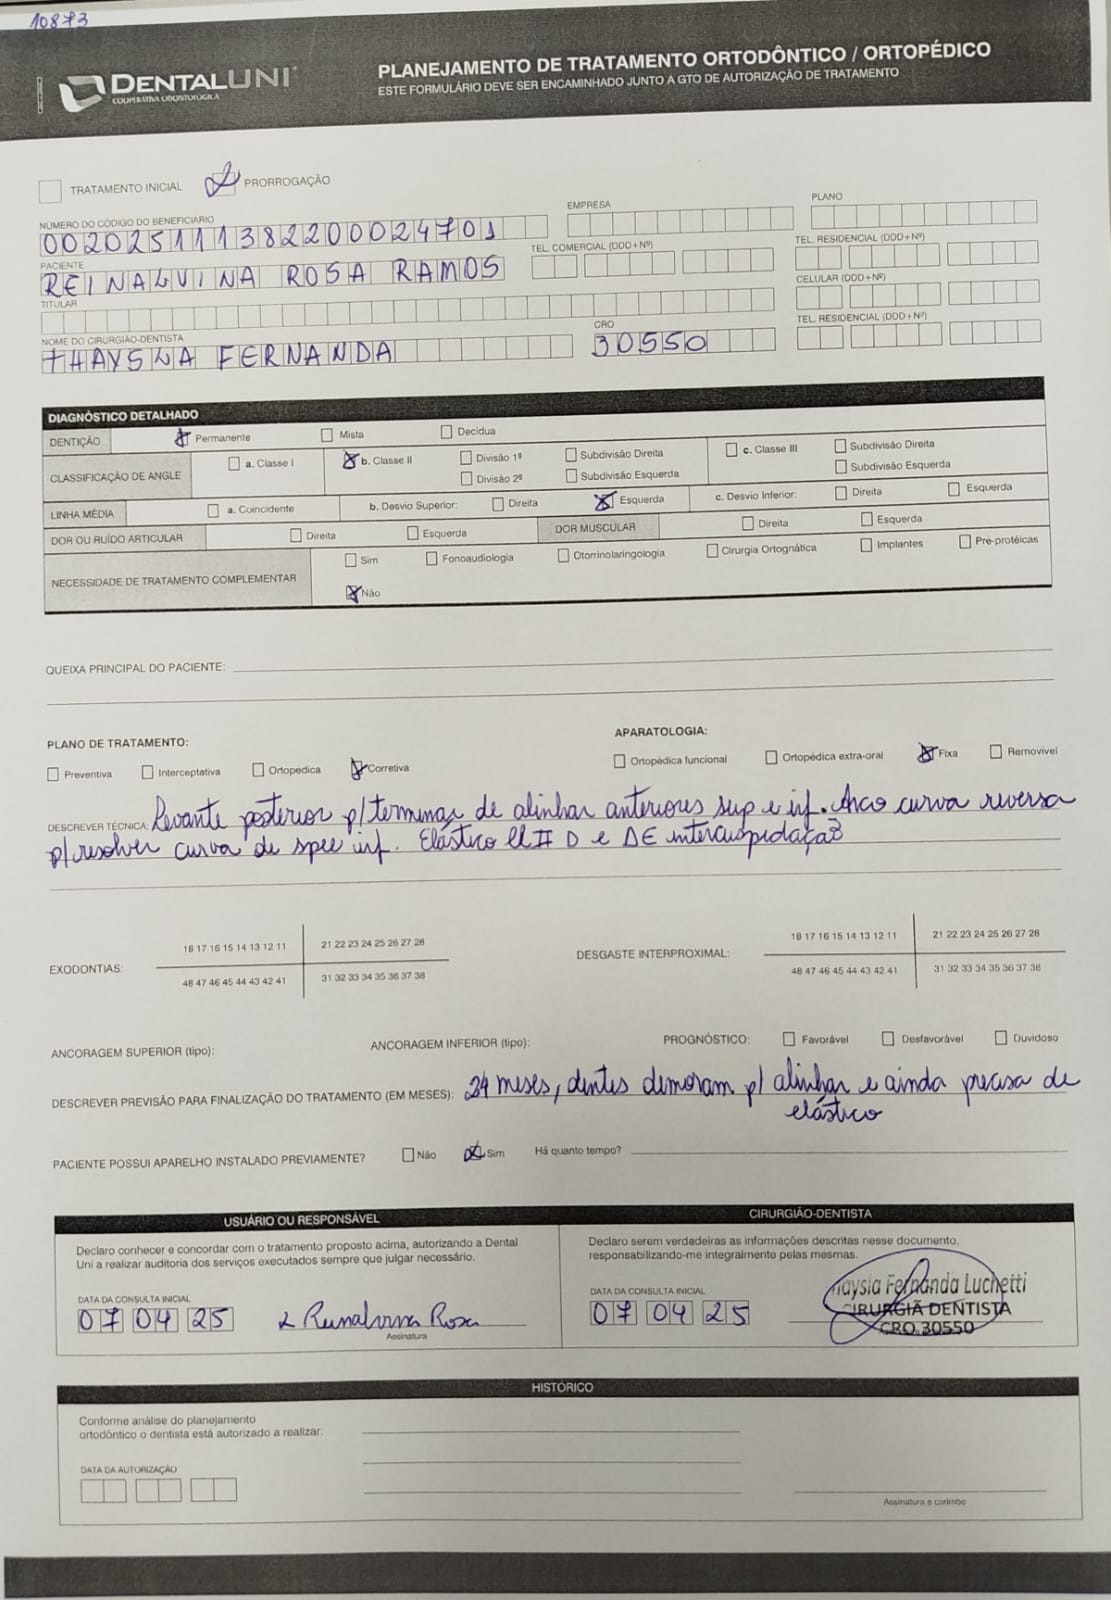 10873
DENTALUNI
COOPERATIVA ODONTOLÓGICA
PLANEJAMENTO DE TRATAMENTO ORTODÔNTICO / ORTOPÉDICO
ESTE FORMULÁRIO DEVE SER ENCAMINHADO JUNTO A GTO DE AUTORIZAÇÃO DE TRATAMENTO
TRATAMENTO INICIAL PRORROGAÇÃO
NÚMERO DO CÓDIGO DO BENEFICIÁRIO EMPRESA PLANO
002025111382200024701
PACIENTE TEL. COMERCIAL (DDD+Nº) TEL. RESIDENCIAL (DDD+Nº)
REINALVINA ROSA RAMOS
TITULAR CELULAR (DDD+Nº)
NOME DO CIRURGIÃO-DENTISTA CRO TEL. RESIDENCIAL (DDD+Nº)
THAYSLA FERNANDA 30550
DIAGNÓSTICO DETALHADO
DENTIÇÃO Permanente Mista Decídua
CLASSIFICAÇÃO DE ANGLE a. Classe I b. Classe II Divisão 1ª Subdivisão Direita c. Classe III Subdivisão Direita
Divisão 2ª Subdivisão Esquerda Subdivisão Esquerda
LINHA MÉDIA a. Coincidente b. Desvio Superior: Direita Esquerda c. Desvio Inferior: Direita Esquerda
DOR OU RUÍDO ARTICULAR Direita Esquerda DOR MUSCULAR Direita Esquerda
NECESSIDADE DE TRATAMENTO COMPLEMENTAR Sim Fonoaudiologia Otorrinolaringologia Cirurgia Ortognática Implantes Pré-protéicas
Não
QUEIXA PRINCIPAL DO PACIENTE:
PLANO DE TRATAMENTO: APARATOLOGIA:
Preventiva Interceptativa Ortopédica Corretiva Ortopédica funcional Ortopédica extra-oral Fixa Removível
DESCREVER TÉCNICA: Levante posterior p/ terminar de alinhar anteriores sup e inf. Arco curva reversa
p/ resolver curva de spee inf. Elástico Cl II D e ΔE intercuspidação
EXODONTIAS: 18 17 16 15 14 13 12 11 21 22 23 24 25 26 27 28
48 47 46 45 44 43 42 41 31 32 33 34 35 36 37 38
DESGASTE INTERPROXIMAL: 18 17 16 15 14 13 12 11 21 22 23 24 25 26 27 28
48 47 46 45 44 43 42 41 31 32 33 34 35 36 37 38
ANCORAGEM SUPERIOR (tipo): ANCORAGEM INFERIOR (tipo): PROGNÓSTICO: Favorável Desfavorável Duvidoso
DESCREVER PREVISÃO PARA FINALIZAÇÃO DO TRATAMENTO (EM MESES): 24 meses, dentes demoram p/ alinhar e ainda precisa de
elástico
PACIENTE POSSUI APARELHO INSTALADO PREVIAMENTE? Não Sim Há quanto tempo?
USUÁRIO OU RESPONSÁVEL
Declaro conhecer e concordar com o tratamento proposto acima, autorizando a Dental
Uni a realizar auditoria dos serviços executados sempre que julgar necessário.
DATA DA CONSULTA INICIAL
07 04 25 Reinalvina Rosa
Assinatura
CIRURGIÃO-DENTISTA
Declaro serem verdadeiras as informações descritas nesse documento,
responsabilizando-me integralmente pelas mesmas.
DATA DA CONSULTA INICIAL
07 04 25
haysla Fernanda Luchetti
CIRURGIÃ DENTISTA
CRO.30550
HISTÓRICO
Conforme análise do planejamento
ortodôntico o dentista está autorizado a realizar:
DATA DA AUTORIZAÇÃO
Assinatura e carimbo